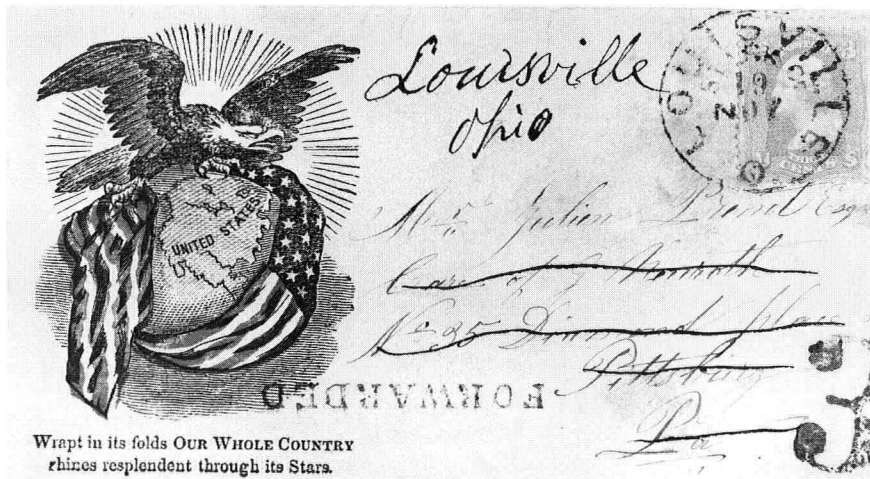 Louisville
Ohio
LOUISVILLE O
UNITED STATES
Care of
No 35 Diamond place
Pittsburg
Pa
FORWARDED
Wrapt in its folds OUR WHOLE COUNTRY
rhines resplendent through its Stars.